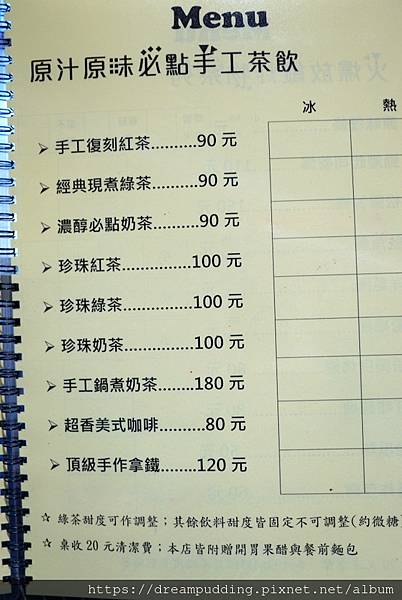 Menu
原汁原味必點手工茶飲
冰 熱
➢ 手工復刻紅茶..........90 元
➢ 經典現煮綠茶..........90 元
➢ 濃醇必點奶茶..........90 元
➢ 珍珠紅茶...............100 元
➢ 珍珠綠茶...............100 元
➢ 珍珠奶茶...............100 元
➢ 手工鍋煮奶茶........180 元
➢ 超香美式咖啡..........80 元
➢ 頂級手作拿鐵........120 元
☆ 綠茶甜度可作調整；其餘飲料甜度皆固定不可調整(約微糖
☆ 桌收 20 元清潔費；本店皆附贈開胃果醋與餐前麵包
https://dreampudding.pixnet.net/album